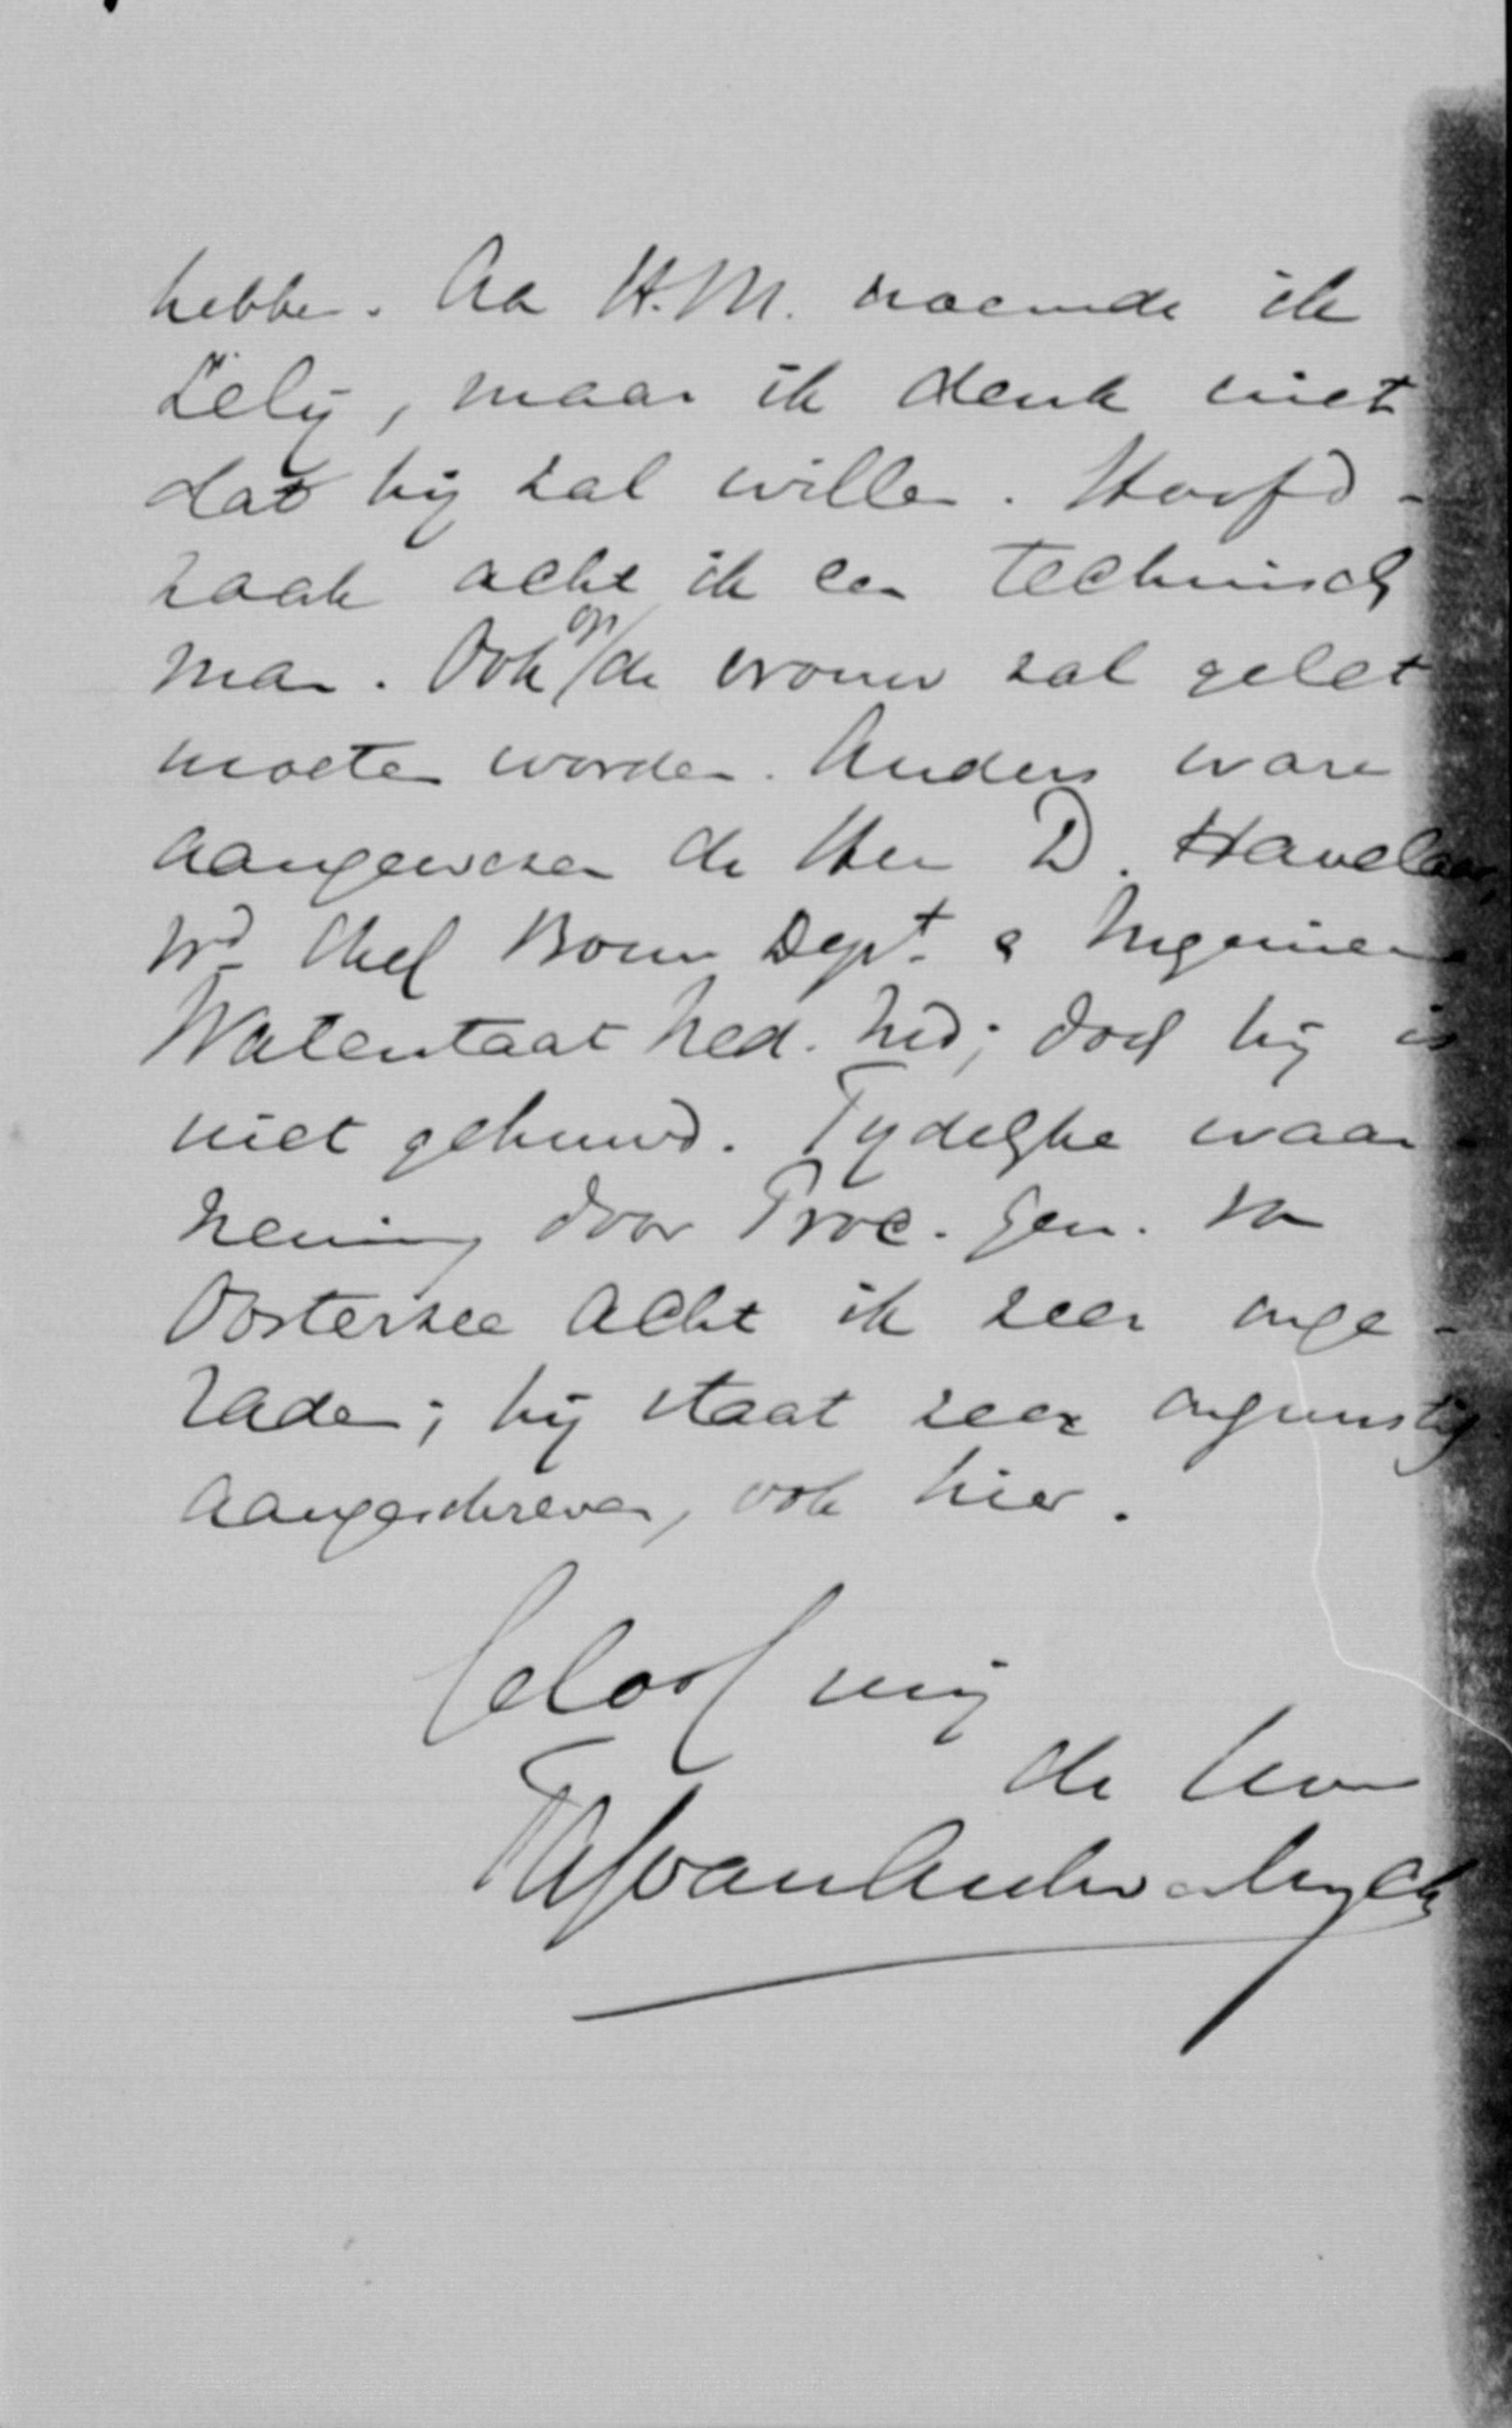 hebben. Aan H.M. noemde ik
Lely, maar ik denk niet
dat hij zal willen. Hoofd-
zaak acht ik een technisch
man. Ook op de vrouw zal gelet
moeten worden. Anders ware
aangewezen de Heer D. Havelaar,
Wd Chef Bouw Dept. & Ingenieur
Waterstaat Ned. Ind; doch hij is
niet gehuwd. Tydelyke waar-
neming door Proc. Gen. van
Oosterzee acht ik zeer onge-
raden; hij staat zeer ongunstig
aangeschreven, ook hier.
Geloof mij
de Uwe